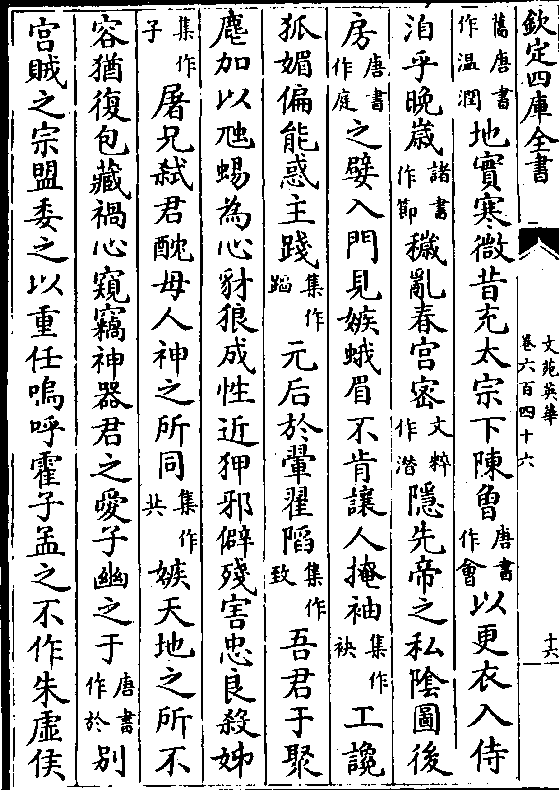 欽定四庫全書
文苑英華
卷六百四十六
十六
舊唐書作温潤地實寒微昔充太宗下陳曾唐書作會以更衣入侍
洎乎晚歲諸書作節穢亂春宮密文粹作潜隠先帝之私隂圖後
房唐書作庭之嬖入門見嫉蛾眉不肯讓人掩袖集作袂工讒
狐媚偏能惑主踐集作蹈元后於翬翟䧟集作致吾君于聚
麀加以虺蜴為心豺狼成性近狎邪僻殘害忠良殺姊
集作子屠兄弑君酖母人神之所同集作共嫉天地之所不
容猶復包藏禍心窺竊神器君之愛子幽之于唐書作於别
宮賊之宗盟委之以重任嗚呼霍子孟之不作朱虛侯